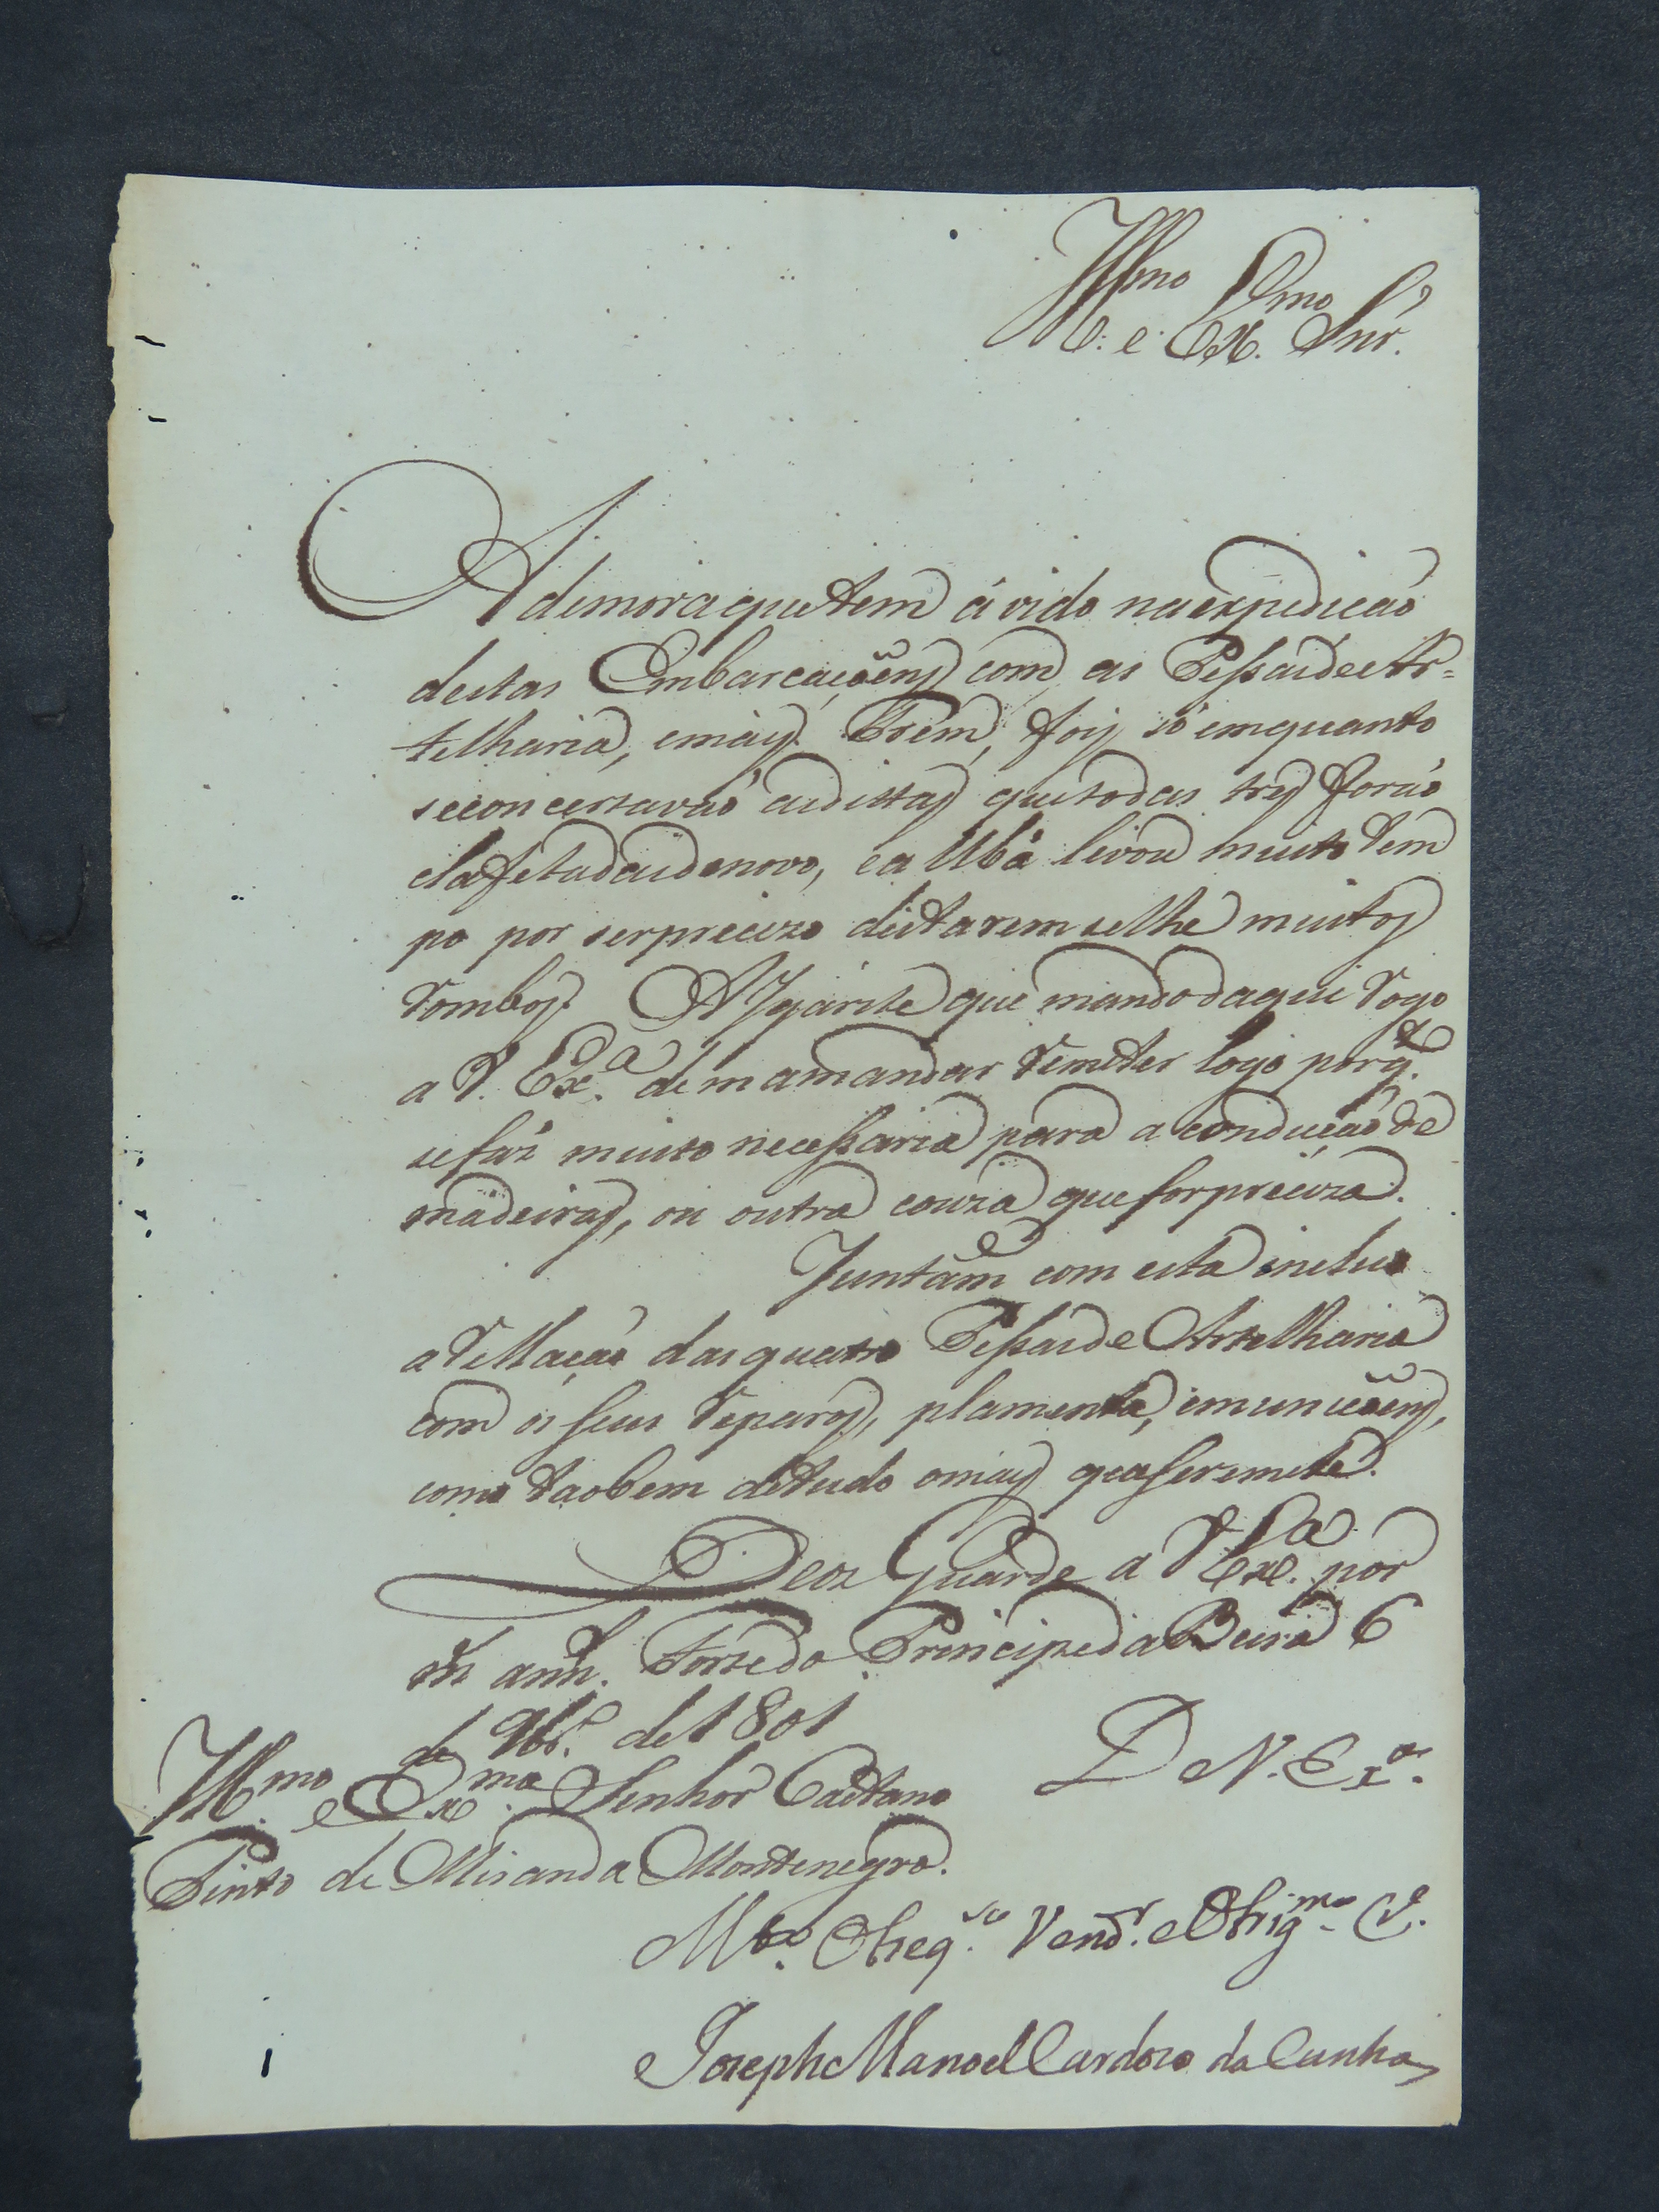 Illmo
e Exmo. Snr.
A demora que tem ávido na expedicaõ
destas Embarcaçoẽns com as Pessas de Ar=
telharia, e mais Trem, foy só emquanto
se concertavaõ as dittas que todas tres foraõ
clafetadas de novo, e a Ubá levou muito tem
po por ser precizo deitaremselhe muitos
rombos. A Ygarite que mando daqui rogo
a V. Exa. de ma mandar remeter logo porq.
se fás muito necessaria para a conduçaõ de
madeiras, ou outra couza que for preciza.
Juntame. com esta incluo
a rellaçaõ das quatro Pessas de Artelharia
com os seus reparos, plamenta, e municoẽns,
como taobem de tudo o mais que se remete.
Deos Guarde a V Exa. por
ms. anns. Forte do Principe da Beira 6
de 9br.e de 1801
Illmo. e Exmo. Senhor Caetano
Pinto de Miranda Montenegro.
D V. Exa.
Mto. Obseq.so Vend.r e Obrig.mo C.
Joseph Manoel Cardozo da Cunha